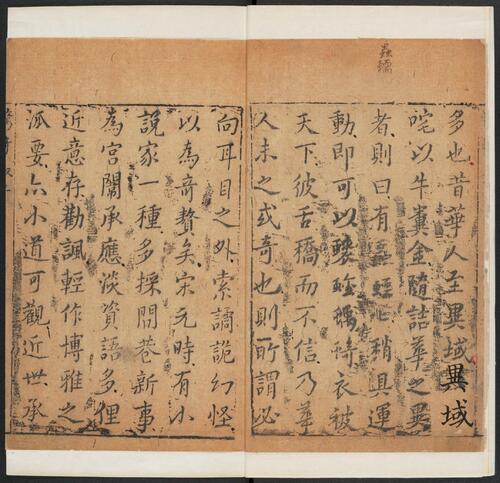 蟲蠕
多也昔華人至異域異域
咤以牛糞金隨詰華之異
者則曰有也稍具運
動即可以衣被
天下彼舌橋而不信乃華
人未之或奇也則所謂必
向耳目之外索譎詭幻怪
以為奇贅矣宋元時有小
說家一種多採閭巷新事
為宮闈承應談資語多俚
近意存勸諷輕作博雅之
派要亦小道可觀近世承